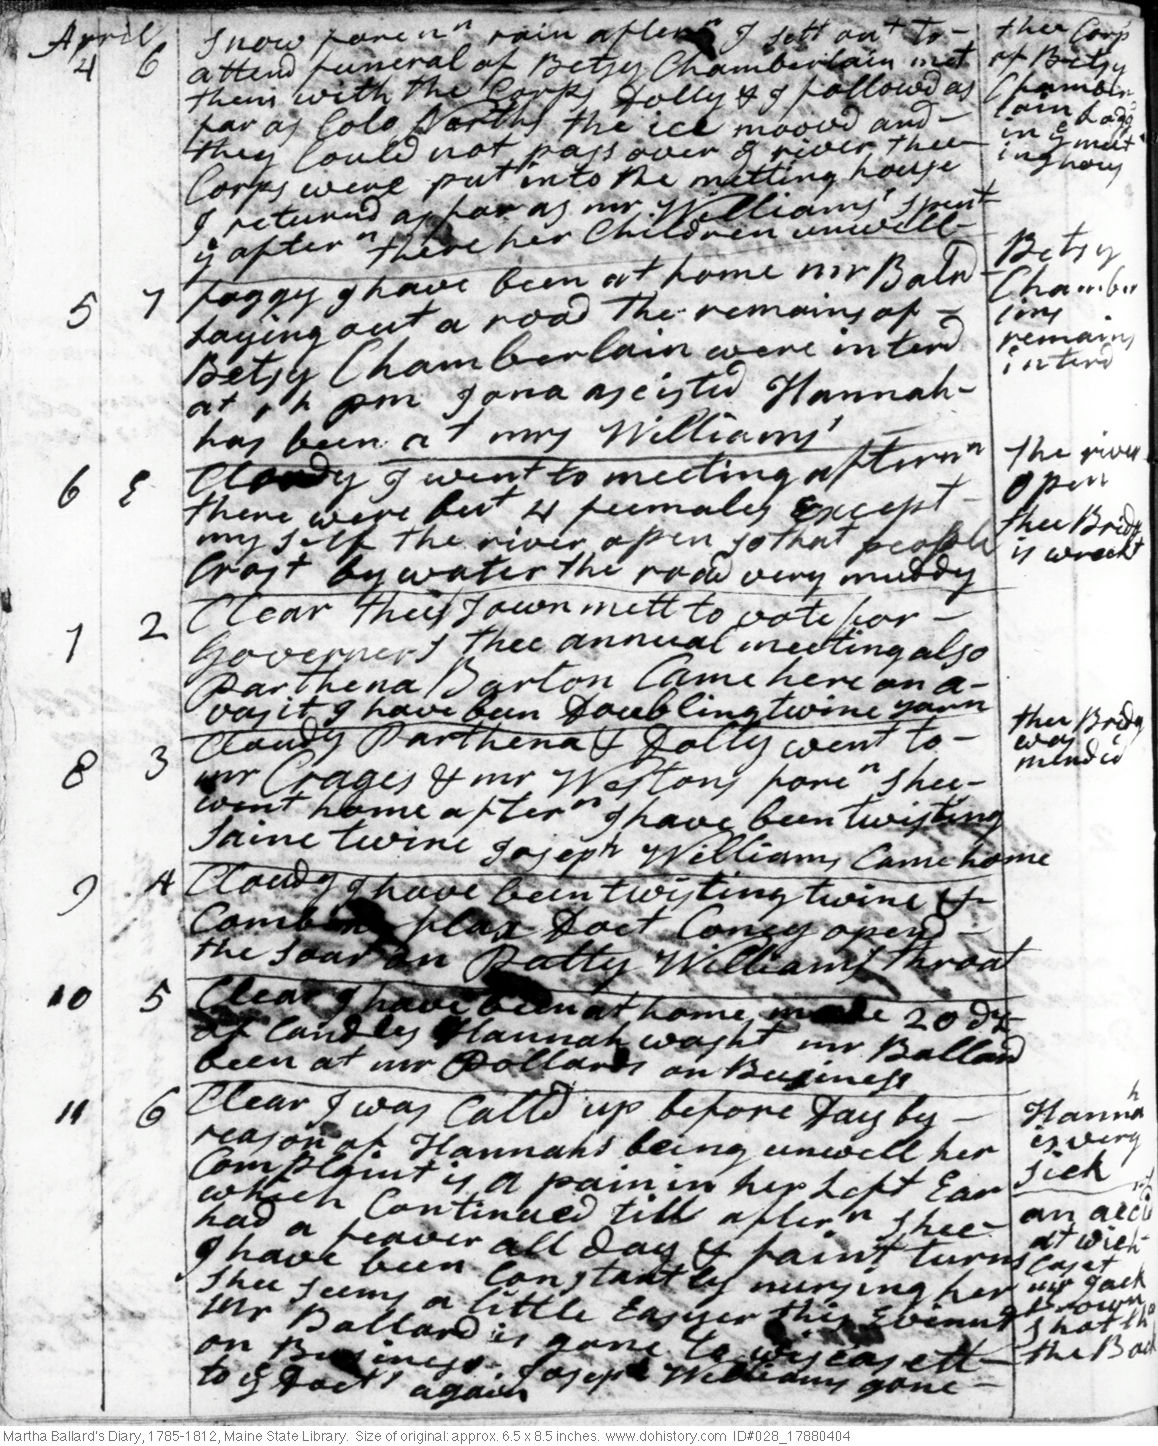 April
4 6 Snow foren n rain aftern n I sett out to- thee Corps
attend funeral of Betsy Chamberlain met of Betsy
them with the Corps Dolly & I followd as Chamber
far as Colo Norths the ice moovd and- lain Lodgd
they Could not pass over ye river thee in ye meet
Corps were put into the meeting house ing hous
I returnd as far as mr Williams' spent
ye aftern n there her Children unwell-
5 7 foggy I have been at home mr Balad Betsy
laying out a road the remains of - Chamber
Betsy Chamberlain were interd lins
at 1 h pm Jona asisted Hannah- remains
has been at mrs Williams' interd
6 E Cloudy I went to meeting aftern n the river
there were but 4 feemales Except- open
my self the river open so that people thee Bredg
Crost by water the road very muddy is wreckt
7 2 Clear thee Town mett to vote for -
Governers thee annual meeting also
Parthena Barton Came here on a-
vasit I have been Doubling twine yarn
8 3 Cloudy Parthena & Dolly went to- thee Bredg
mr Crages & mr Westons foren n shee- was
went home aftern n I have been twisting mendid
Saine twine Joseph Williams Came home
9 4 Cloudy I have been twisting twine &-
Combing flax Doct Coney opend-
the soar on Patty Williams' throat
10 5 Clear I have been at home made 20 dz
of Candles Hannah washt mr Ballard
been at mr Pollards on Business
11 6 Clear I was Calld up before Day by - Hannah
reason of Hannahs being unwell her is very
Complaint is a pain in her Left Ear sick
which Continued till aftern n shee- an accid
had a feaver all day & faint turns at wich-
I have been Constantly nursing her Caset
shee seems a little Easyer this Evinng mr Jack
mr Ballard is gone to wiscasett- Brown
on Business. Joseph Williams gone- shot th
to ye Doct' again the Back
Martha Ballard's Diary, 1785-1812, Maine State Library. Size of original: approx. 6.5 x 8.5 inches. www.dohistory.com ID#028_17880404